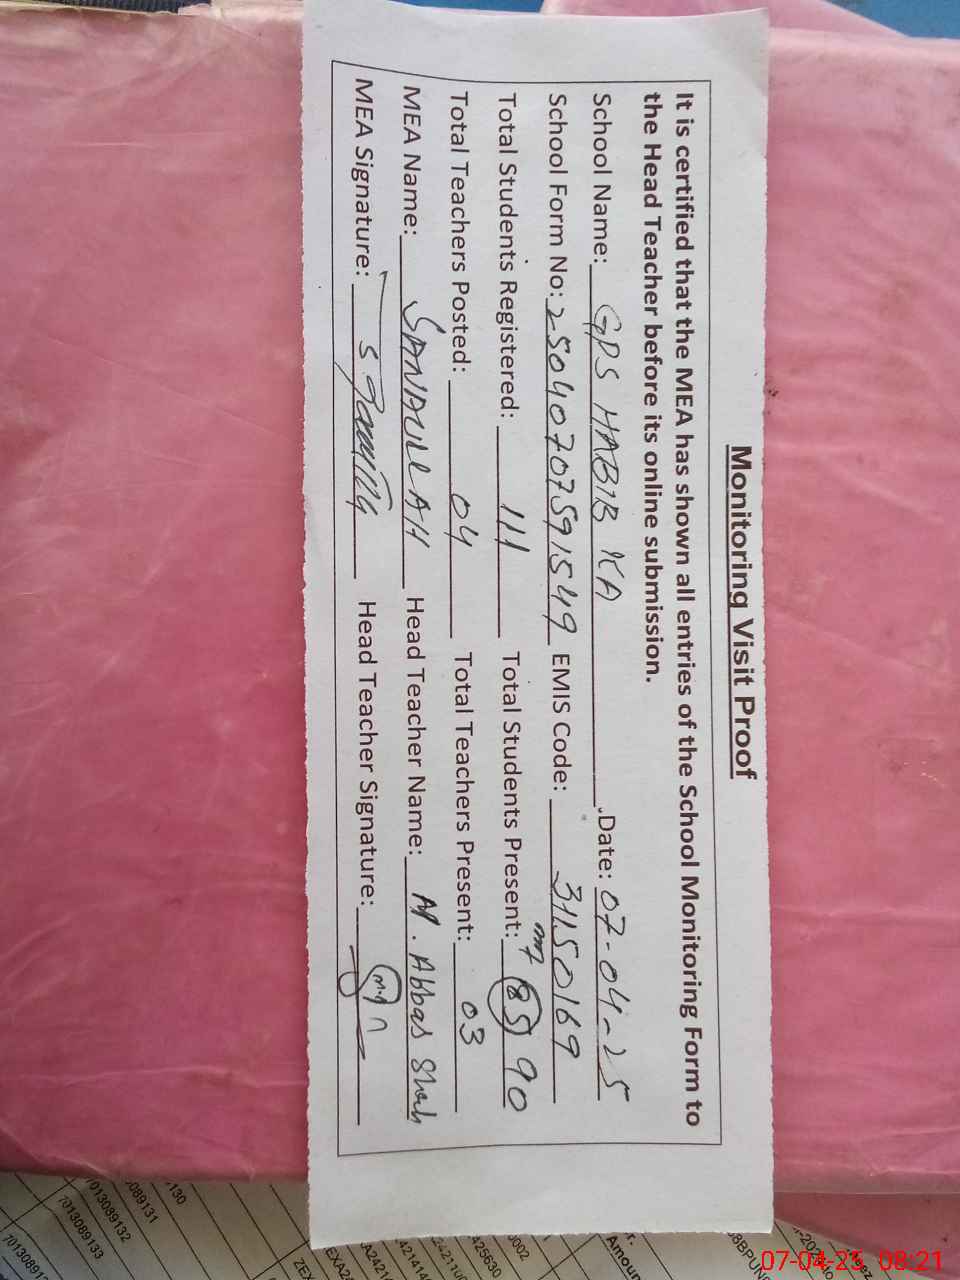 Monitoring Visit Proof
It is certified that the MEA has shown all entries of the School Monitoring Form to
the Head Teacher before its online submission.
School Name: GPS HABIB KA Date: 07-04-25
School Form No: 2504070759 1549 EMIS Code: 31150169
Total Students Registered: 111 Total Students Present: 85 90
Total Teachers Posted: 04 Total Teachers Present: 03
MEA Name: SANAULLAH Head Teacher Name: M. Abbas Shah
MEA Signature: Head Teacher Signature:
130
089131
7013089132
7013089133
7013089
0002
425630
Amoun
07-04-25 08:21